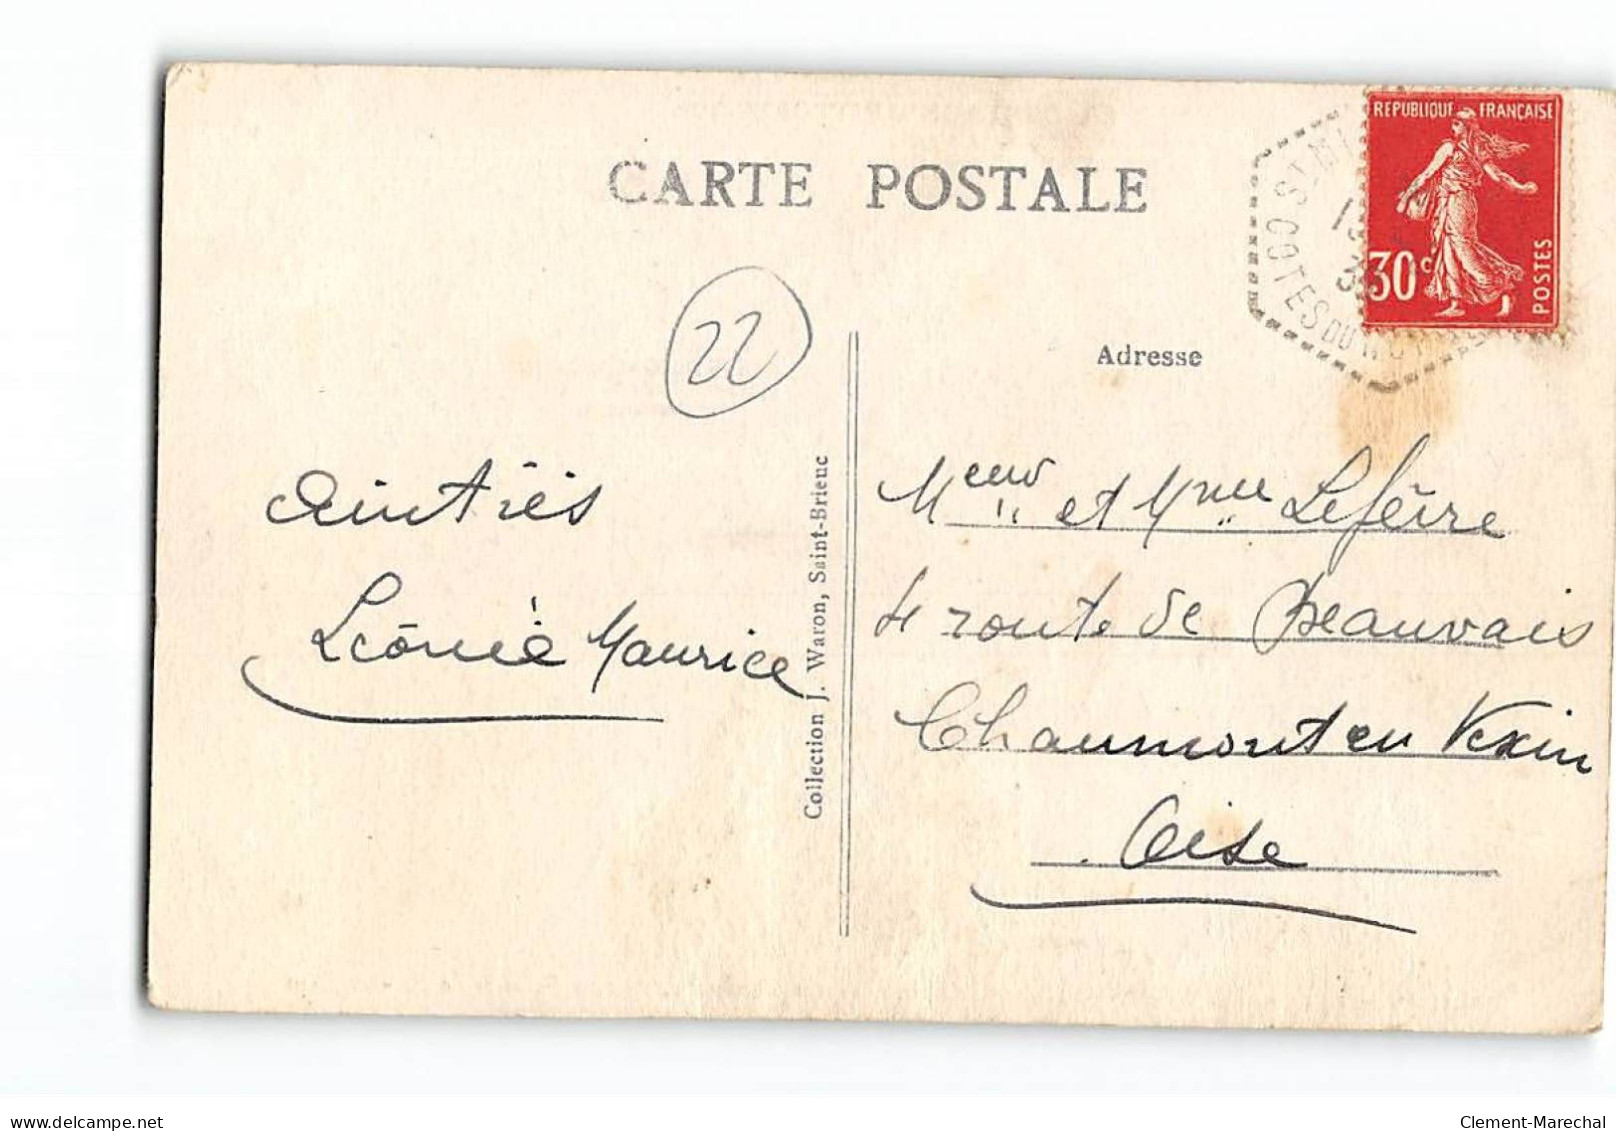 CARTE POSTALE
RÉPUBLIQUE FRANÇAISE
30c
POSTES
COTES DU NORD
22
Adresse
Amitiés
Léonie Maurice
Collection J. Waron, Saint-Brieuc
Meeur et Mme Lefèvre
4 route de Beauvais
Chaumont en Vexin
Oise
delcampe.net
Clement-Marechal